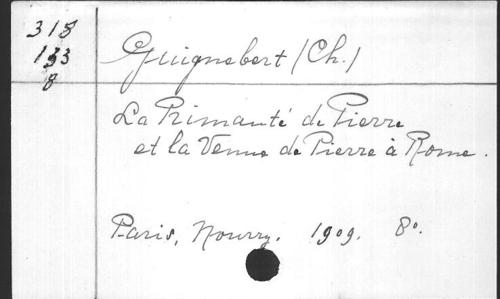 318
133
8
Guignebert (Ch.)
La Primauté de Pierre
et la Venue de Pierre à Rome.
Paris, Nourry. 1909. 8°.